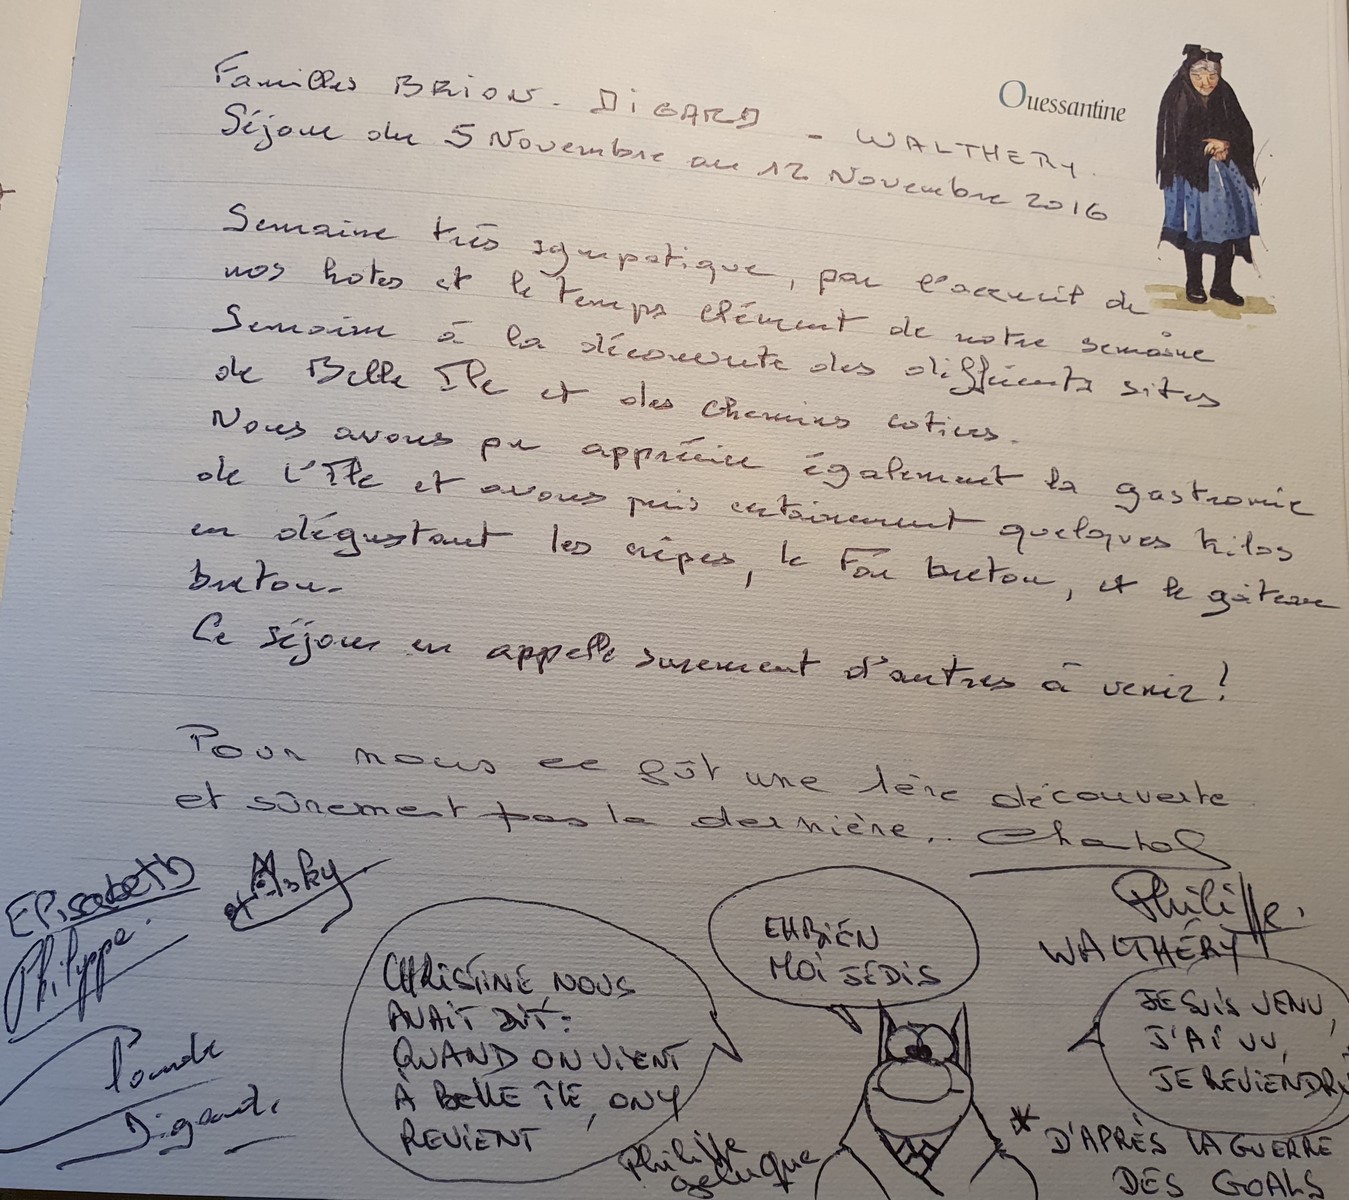 Ouessantine
Familles BRION - DIGARD - WALTHERY.
Séjour du 5 Novembre au 12 Novembre 2016
Semaine très sympatique, par l'accueil de
nos hotes et le temps clément de notre semaine
Semaine à la découverte des différents sites
de Belle Ile et des chemins cotiers.
Nous avons pu apprécier également la gastromie
de l'Ile et avons pris certainement quelques kilos
en dégustant les crêpes, le Far breton, et le gâteau
breton.
Ce séjour en appelle surement d'autres à venir!
Pour nous ce fût une 1ère découverte
et sûrement pas la dernière..
Elisabeth
Philippe.
Digard
CHRISTINE NOUS
AVAIT DIT:
QUAND ON VIENT
À BELLE ÎLE, ON Y
REVIENT
EH BIEN
MOI JE DIS
Philippe
WALTHÉRY
JE SUIS VENU,
J'AI VU,
JE REVIENDRAI
Philippe
geluque
* D'APRÈS LA GUERRE
DES GOALS